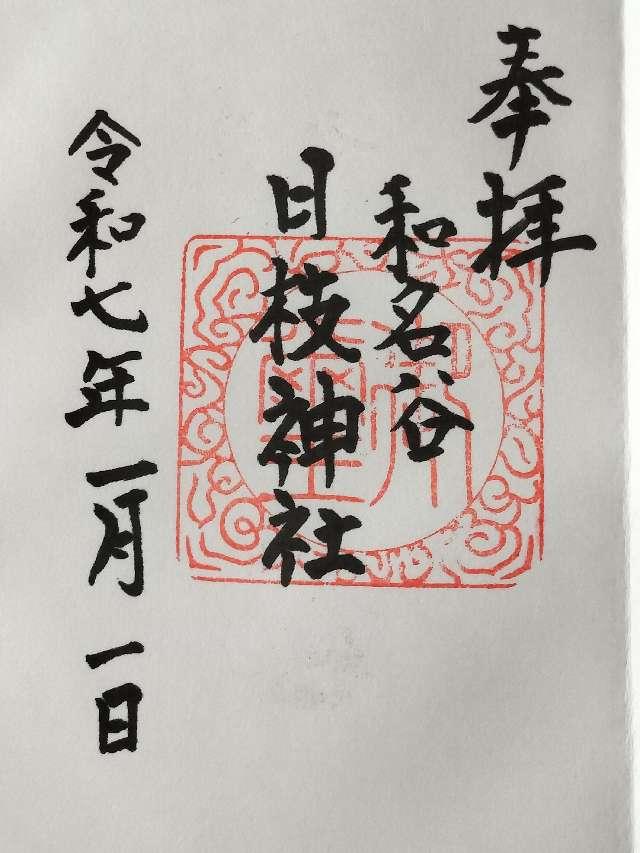 奉拝
和名谷
日枝神社
令和七年一月一日